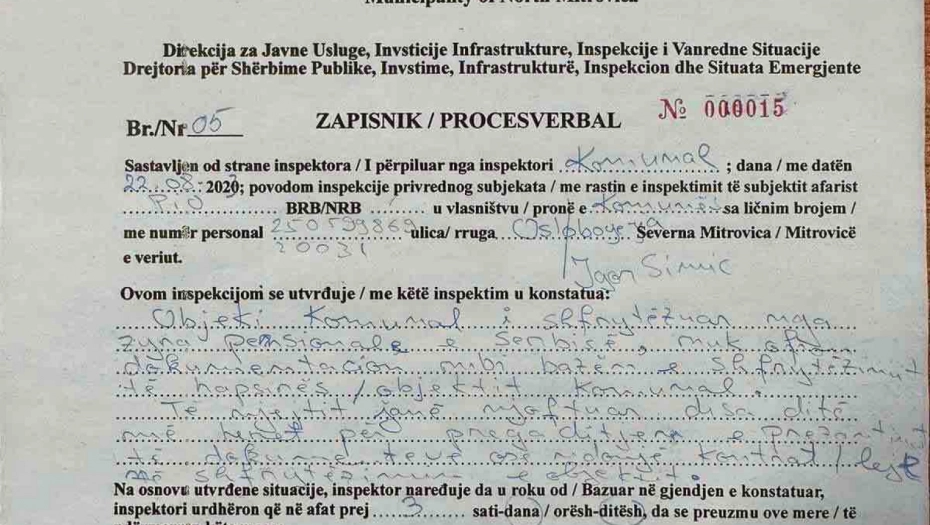 Municipality of North Mitrovica
Direkcija za Javne Usluge, Invsticije Infrastrukture, Inspekcije i Vanredne Situacije
Drejtoria për Shërbime Publike, Invstime, Infrastrukturë, Inspekcion dhe Situata Emergjente
Br./Nr 05 ZAPISNIK / PROCESVERBAL № 000015
Sastavljen od strane inspektora / I përpiluar nga inspektori Komunal ; dana / me datën
22.08. 2020; povodom inspekcije privrednog subjekata / me rastin e inspektimit të subjektit afarist
PIO BRB/NRB / u vlasništvu / pronë e Komunës sa ličnim brojem /
me numër personal 250599869 ulica/ rruga Severna Mitrovica / Mitrovicë
20031
e veriut.
Igor Simic
Ovom inspekcijom se utvrđuje / me këtë inspektim u konstatua:
Objekti Komunal i shfrytëzuar nga
zyra pensionale e Serbisë, nuk
dokumentacion mbi bazën e shfrytëzimit
të hapsirës / objektit Komunal.
Të njejtit janë njoftuar disa ditë
më herët për pregaditjen e
të ose ndonjë kontrat / leje
shfrytëzimin e objektit.
Na osnovu utvrđene situacije, inspektor naređuje da u roku od / Bazuar në gjendjen e konstatuar,
inspektori urdhëron që në afat prej 3 sati-dana / orësh-ditësh, da se preuzmu ove mere / të